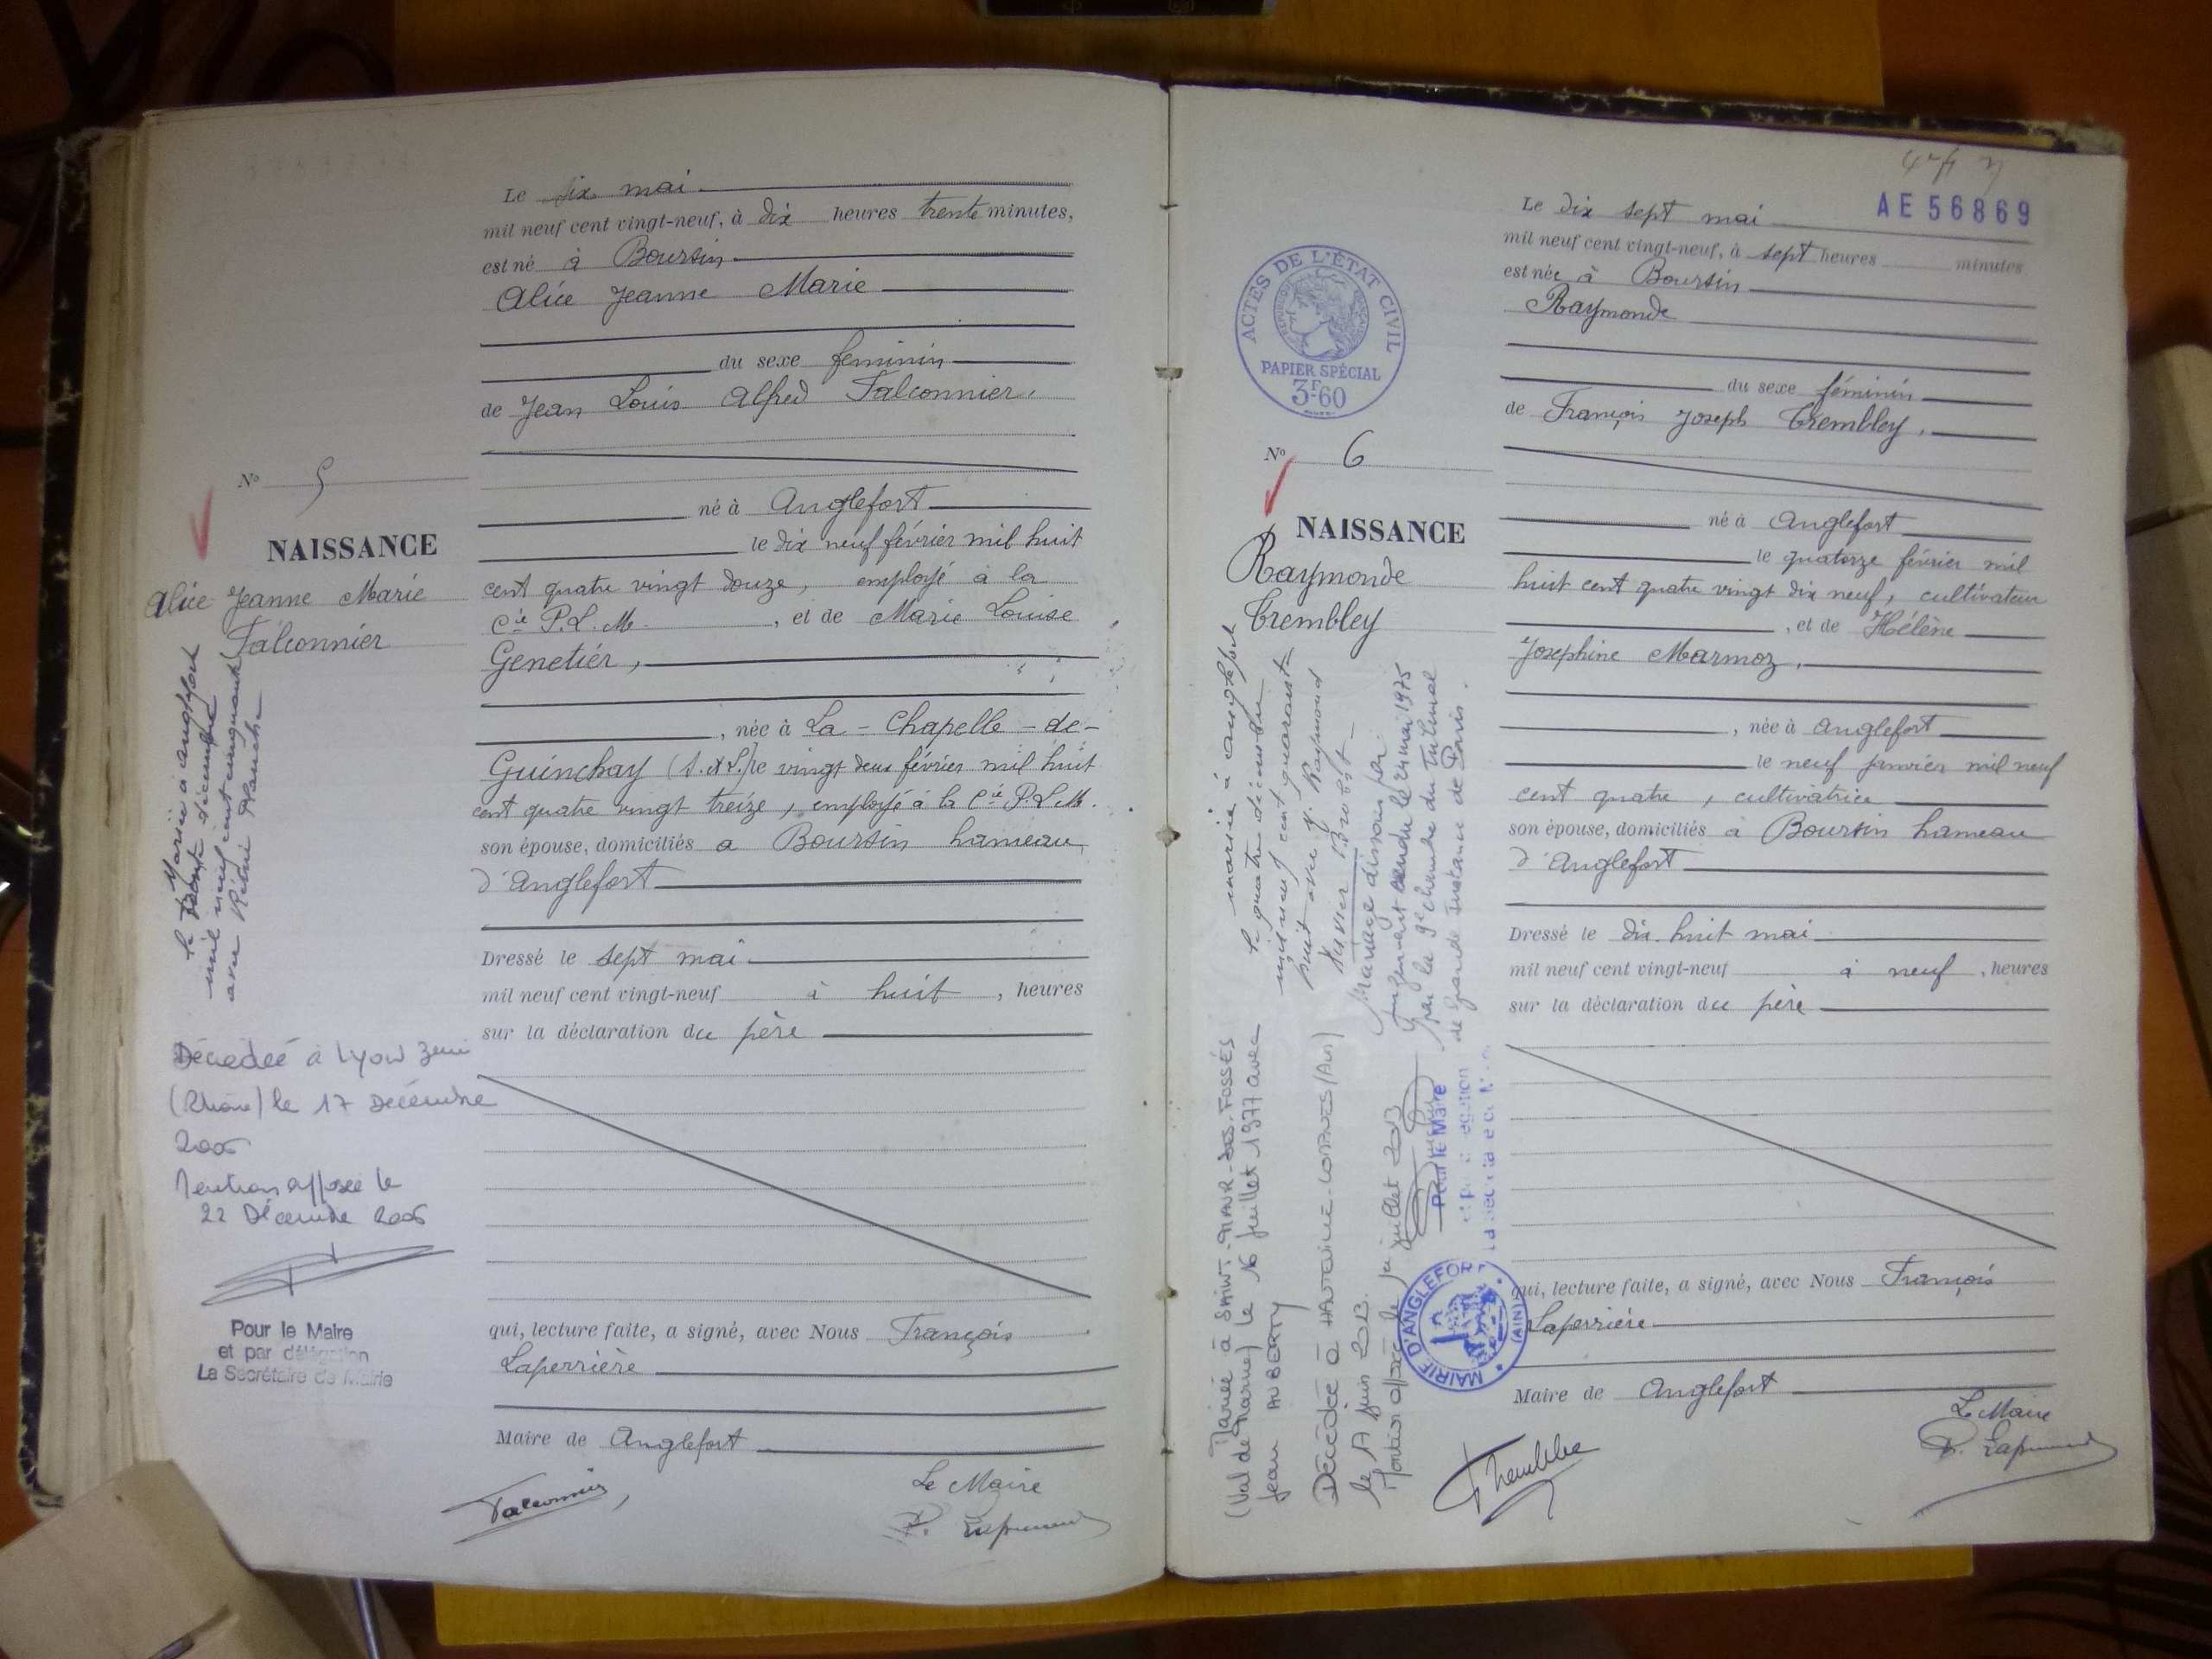 Le six mai
mil neuf cent vingt-neuf, à dix heures trente minutes,
est né à Boursin
Alice Jeanne Marie
du sexe feminin
de Jean Louis Alfred Falconnier,
né à Anglefort
le dix neuf février mil huit
cent quatre vingt douze, employé à la
Cie P.L.M. , et de Marie Louise
Genetier,
, née à La - Chapelle - de -
Guinchay (S. et L.) le vingt deux février mil huit
cent quatre vingt treize, employé à la Cie P.L.M.
son épouse, domiciliés a Boursin hameau
d'Anglefort
Dressé le sept mai
mil neuf cent vingt-neuf à huit , heures
sur la déclaration du père
qui, lecture faite, a signé, avec Nous François
Laperrière
Maire de Anglefort
Falconnier
Le Maire
No 5
NAISSANCE
Alice Jeanne Marie
Falconnier
Mariée à Anglefort
le trente décembre
mil neuf cent cinquante
avec Rémi Planche
Décédée à Lyon 3eme
(Rhône) le 17 Décembre
2006
Mention apposée le
22 Décembre 2006
Pour le Maire
et par délégation
La Secrétaire de Mairie
AE 56869
Le dix sept mai
mil neuf cent vingt-neuf, à sept heures minutes
est née à Boursin
Raymonde
du sexe féminin
de François Joseph Trembley,
né à Anglefort
le quatorze février mil
huit cent quatre vingt dix neuf, cultivateur
, et de Hélène
Josephine Marmoz,
, née à Anglefort
le neuf janvier mil neuf
cent quatre , cultivatrice
son épouse, domiciliés à Boursin hameau
d'Anglefort
Dressé le dix-huit mai
mil neuf cent vingt-neuf à neuf , heures
sur la déclaration du père
qui, lecture faite, a signé, avec Nous François
Laperrière
Maire de Anglefort
Le Maire
ACTES DE L'ÉTAT CIVIL
RÉPUBLIQUE FRANÇAISE
PAPIER SPÉCIAL
3F60
No 6
NAISSANCE
Raymonde
Trembley
mariée à Anglefort
le quatre décembre
mil neuf cent quarante
huit avec J. Raymond
Xavier
Mariage dissous par
Jugement rendu le 24 mai 1975
par la 9e chambre du Tribunal
de Grande Instance de Paris.
Mariée à SAINT-MAUR-DES-FOSSÉS
(Val de Marne) le 16 juillet 1977 avec
Jean AUBERTY
Décédée à HAUTEVILLE-LOMPNES (AIN)
le 17 juin 2013.
Mention apposée le juillet 2013
Pour le Maire
MAIRIE D'ANGLEFORT
(AIN)